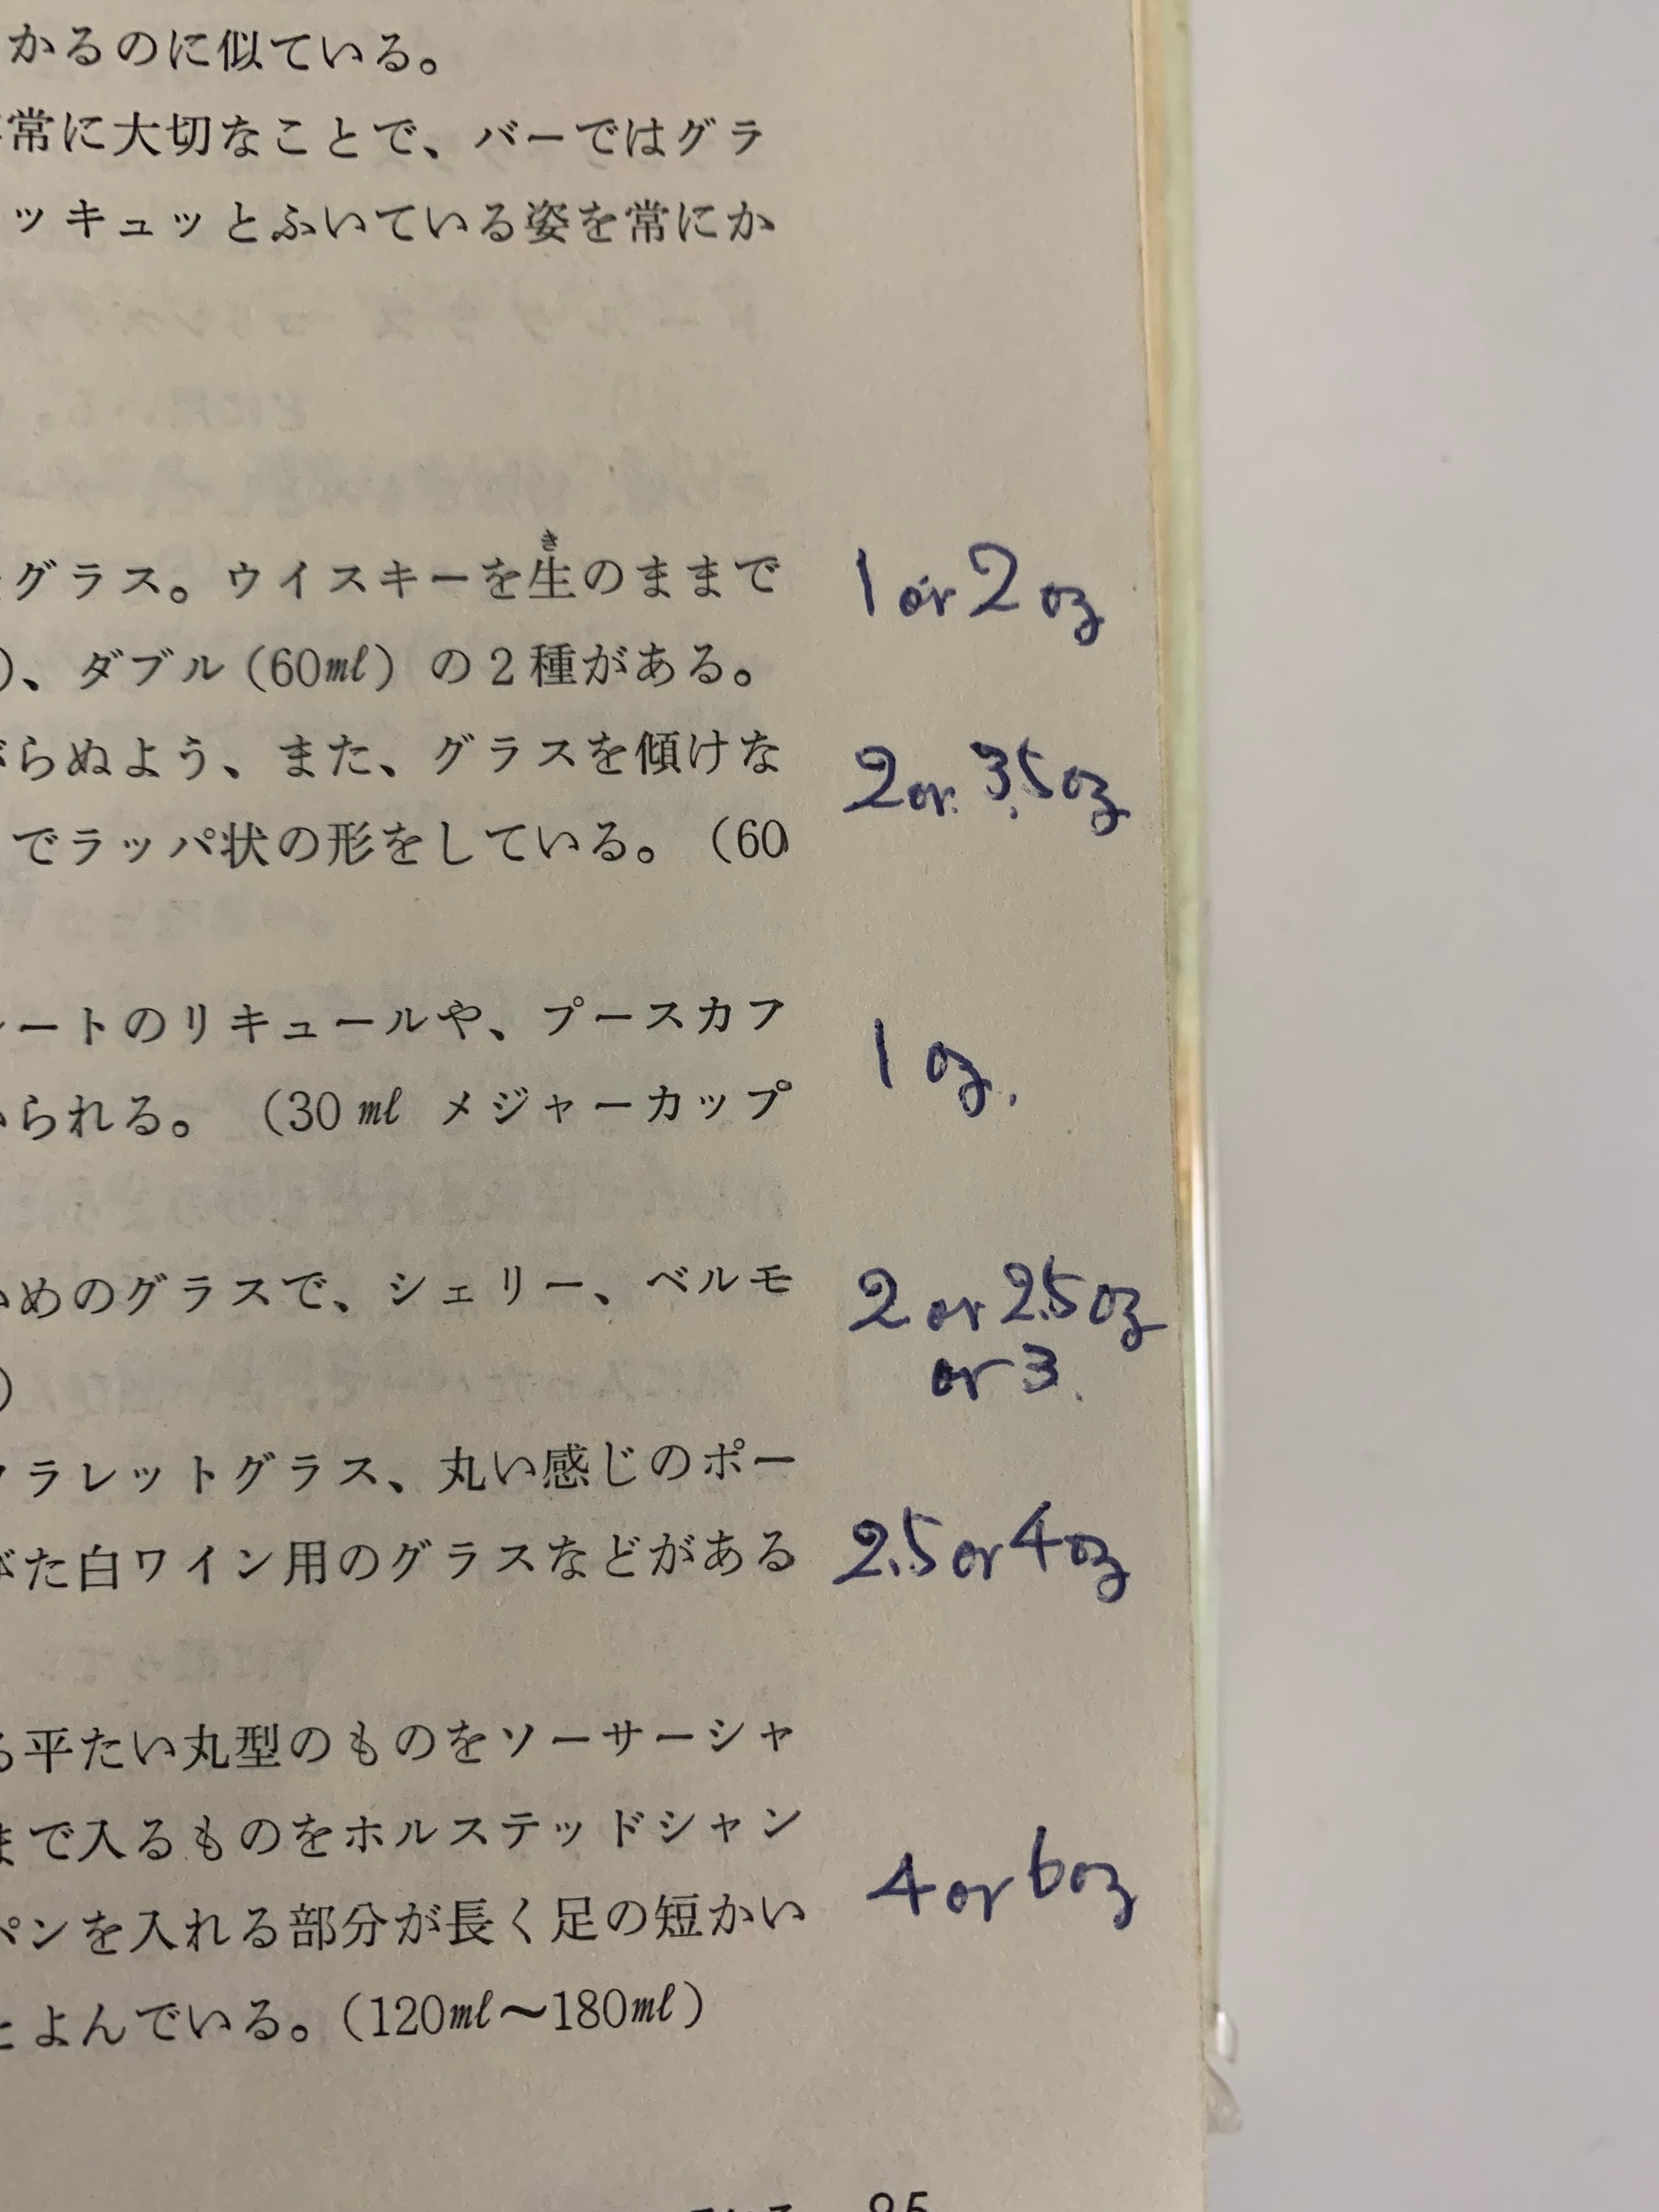 かるのに似ている。
常に大切なことで、バーではグラ
ッキュッとふいている姿を常にか
グラス。ウイスキーを生のままで
き
1 or 2 oz
)、ダブル(60㎖)の2種がある。
らぬよう、また、グラスを傾けな
2 or 3.5 oz
でラッパ状の形をしている。(60
ートのリキュールや、プースカフ
1 oz.
られる。(30㎖ メジャーカップ
めのグラスで、シェリー、ベルモ
2 or 2.5 oz
or 3.
)
ラレットグラス、丸い感じのポー
2.5 or 4 oz
た白ワイン用のグラスなどがある
平たい丸型のものをソーサーシャ
まで入るものをホルステッドシャン
4 or 6 oz
ペンを入れる部分が長く足の短かい
とよんでいる。(120㎖〜180㎖)